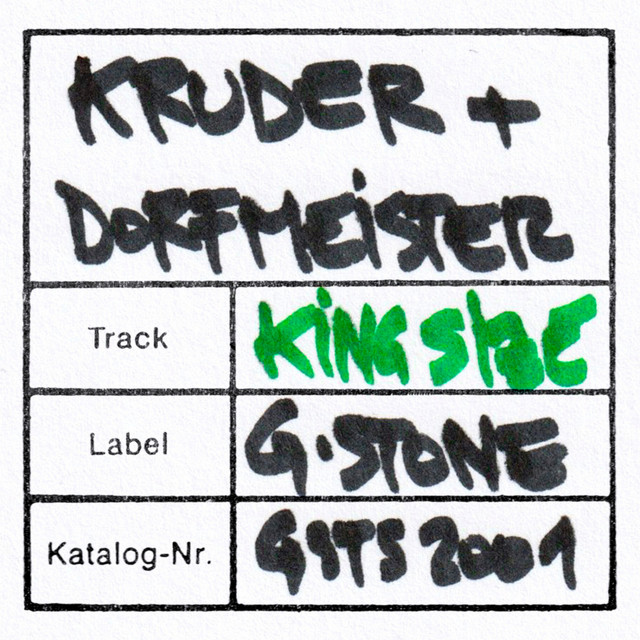 KRUDER +
DORFMEiSTER
Track KiNG SizE
Label G·STONE
Katalog-Nr. GSTS 2001